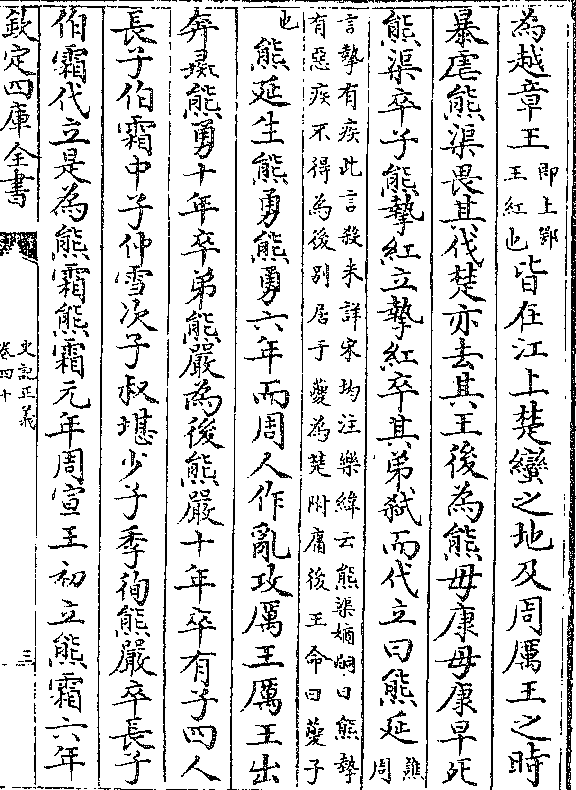 為越章王即上鄂王紅也皆在江上楚蠻之地及周厲王之時
暴虐熊渠畏其伐楚亦去其王後為熊毋康毋康早死
熊渠卒子熊摯紅立摯紅卒其弟弑而代立曰熊延譙周
言摯有疾此言殺未詳宋均注樂緯云熊渠嫡嗣曰熊摯
有惡疾不得為後别居于夔為楚附庸後王命曰夔子
也熊延生熊勇熊勇六年而周人作亂攻厲王厲王出
奔彘熊勇十年卒弟熊嚴為後熊嚴十年卒有子四人
長子伯霜中子仲雪次子叔堪少子季徇熊嚴卒長子
伯霜代立是為熊霜熊霜元年周宣王初立熊霜六年
欽定四庫全書
史記正義
卷四十
三